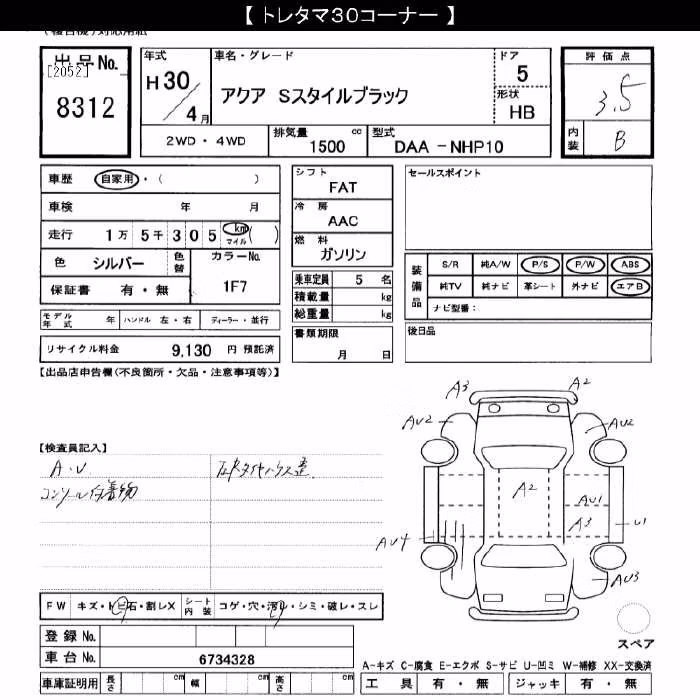 【 トレタマ30コーナー 】
(複合機)対応用紙
出品No.
[2052]
8312
年式
H30/4月
車名・グレード
アクア Sスタイルブラック
ドア
5
形状
HB
2WD・4WD
排気量 1500 cc
型式 DAA-NHP10
評価点
3.5
内装 B
車歴 自家用・( )
車検 年 月
走行 1万5千305 km マイル( )
色 シルバー 色替 カラーNo. 1F7
保証書 有・無
モデル年式 年 ハンドル 左・右 ディーラー・並行
リサイクル料金 9,130 円 預託済
シフト
FAT
冷房
AAC
燃料
ガソリン
乗車定員 5 名
積載量 kg
総重量 kg
書類期限
月 日
セールスポイント
装備品
S/R 純A/W P/S P/W ABS
純TV 純ナビ 革シート 外ナビ エアB
ナビ型番:
後日品
【出品店申告欄(不良箇所・欠品・注意事項等)】
【検査員記入】
A・U
コンソール付着物
A3 A2
AU2 AU2
A2
AU1
A3 U1
AU4
AU3
スペア
FW キズ・トビ石・割レX シート内装 コゲ・穴・汚レ・シミ・破レ・スレ
登録No.
車台No. 6734328
車庫証明用 長さ cm 幅 cm 高さ cm
A-キズ C-腐食 E-エクボ S-サビ U-凹ミ W-補修 XX-交換済
工具 有・無 ジャッキ 有・無